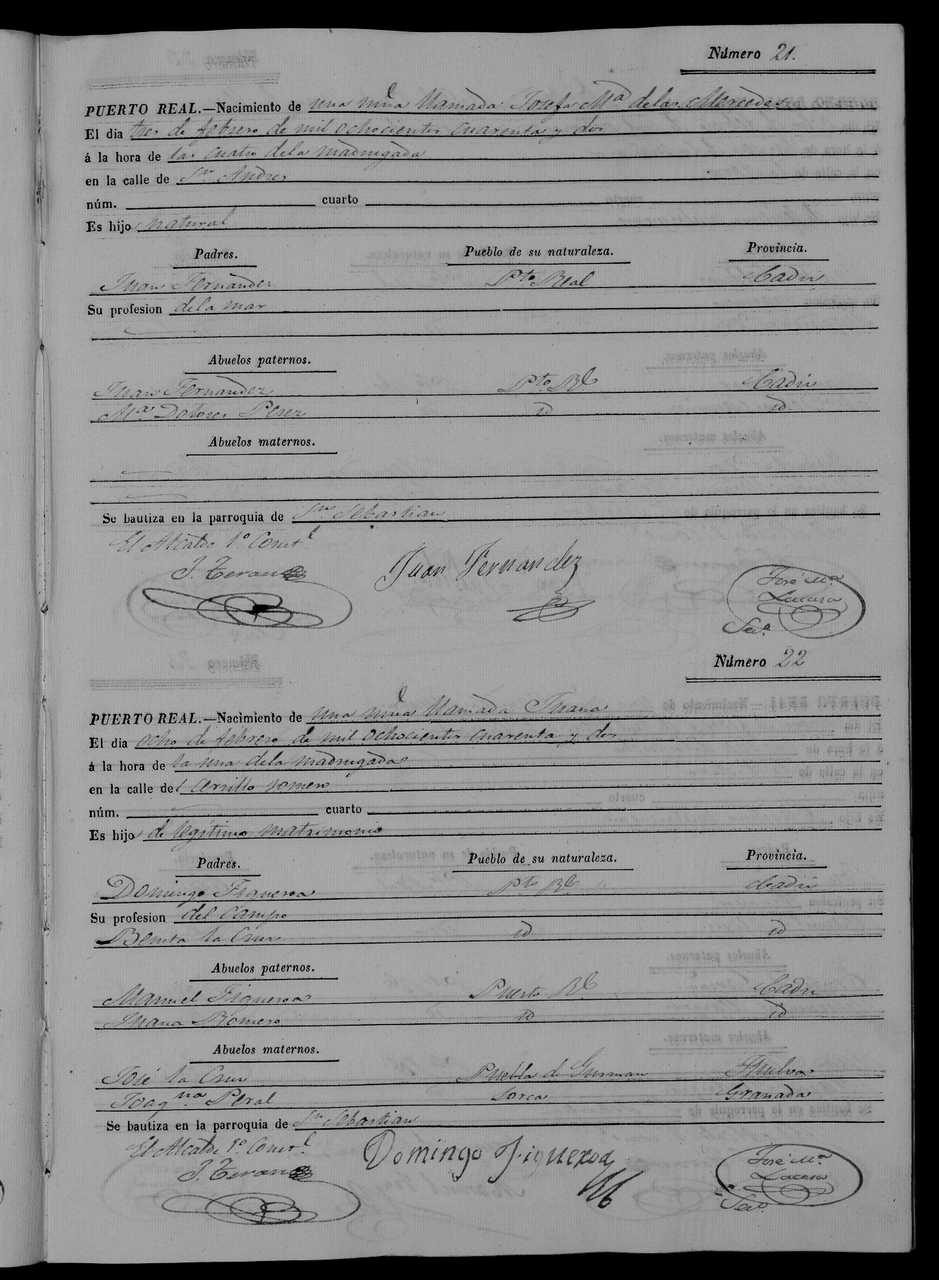 Número 21.
PUERTO REAL.—Nacimiento de una niña llamada Josefa Mª de las Mercedes
El dia tres de febrero de mil ochocientos cuarenta y dos
á la hora de las cuatro dela madrugada
en la calle de Sn Andres
núm. cuarto
Es hijo natural
Padres. Pueblo de su naturaleza. Provincia.
Juan Fernandez Pto Real Cadiz
Su profesion dela mar
Abuelos paternos.
Juan Fernandez Pto Rl Cadiz
Mª Dolores Perez id id
Abuelos maternos.
Se bautiza en la parroquia de Sn Sebastian
El Alcalde 1º Constl
J. Teran Juan Fernandez José Mª
Lacasa
Seco.
Número 22
PUERTO REAL.—Nacimiento de una niña llamada Juana
El dia ocho de febrero de mil ochocientos cuarenta y dos
á la hora de la una dela madrugada
en la calle del
núm. cuarto
Es hijo de legitimo matrimonio
Padres. Pueblo de su naturaleza. Provincia.
Domingo Figueroa Pto Rl Cadiz
Su profesion del campo
Benita la Cruz id id
Abuelos paternos.
Manuel Figueroa Puerto Rl Cadiz
Juana Romero id id
Abuelos maternos.
José la Cruz Puebla de Guzman Huelva
Joaqna Peral Lorca Granada
Se bautiza en la parroquia de Sn Sebastian
El Alcalde 1º Constl
J. Teran Domingo Figueroa José Mª
Lacasa
Seco.